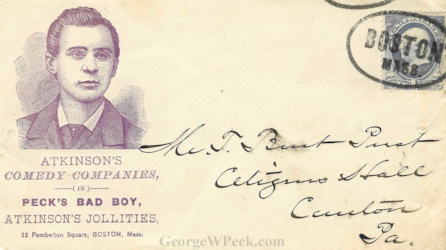 BOSTON
MASS.
ATKINSON'S
COMEDY COMPANIES,
(IN)
PECK'S BAD BOY,
ATKINSON'S JOLLITIES,
32 Pemberton Square, BOSTON, Mass.
Mr. T. Burt Pust
Citizens Hall
Canton
Pa.
GeorgeWPeck.com